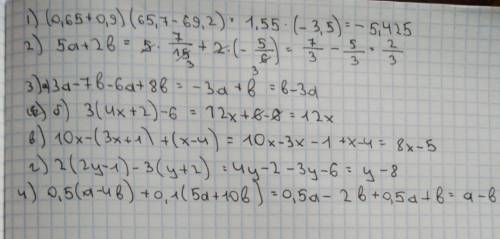 1) (0,65+0,9)(65,7-69,2) = 1,55 · (-3,5) = -5,425
2) 5a+2b = 5 · 7/15 3 + 2 · (-5/6 3) = 7/3 - 5/3 = 2/3
3) 3a-7b-6a+8b = -3a+b = b-3a
б) 3(4x+2)-6 = 12x+6-6 = 12x
в) 10x-(3x+1)+(x-4) = 10x-3x-1+x-4 = 8x-5
г) 2(2y-1)-3(y+2) = 4y-2-3y-6 = y-8
4) 0,5(a-4b)+0,1(5a+10b) = 0,5a-2b+0,5a+b = a-b